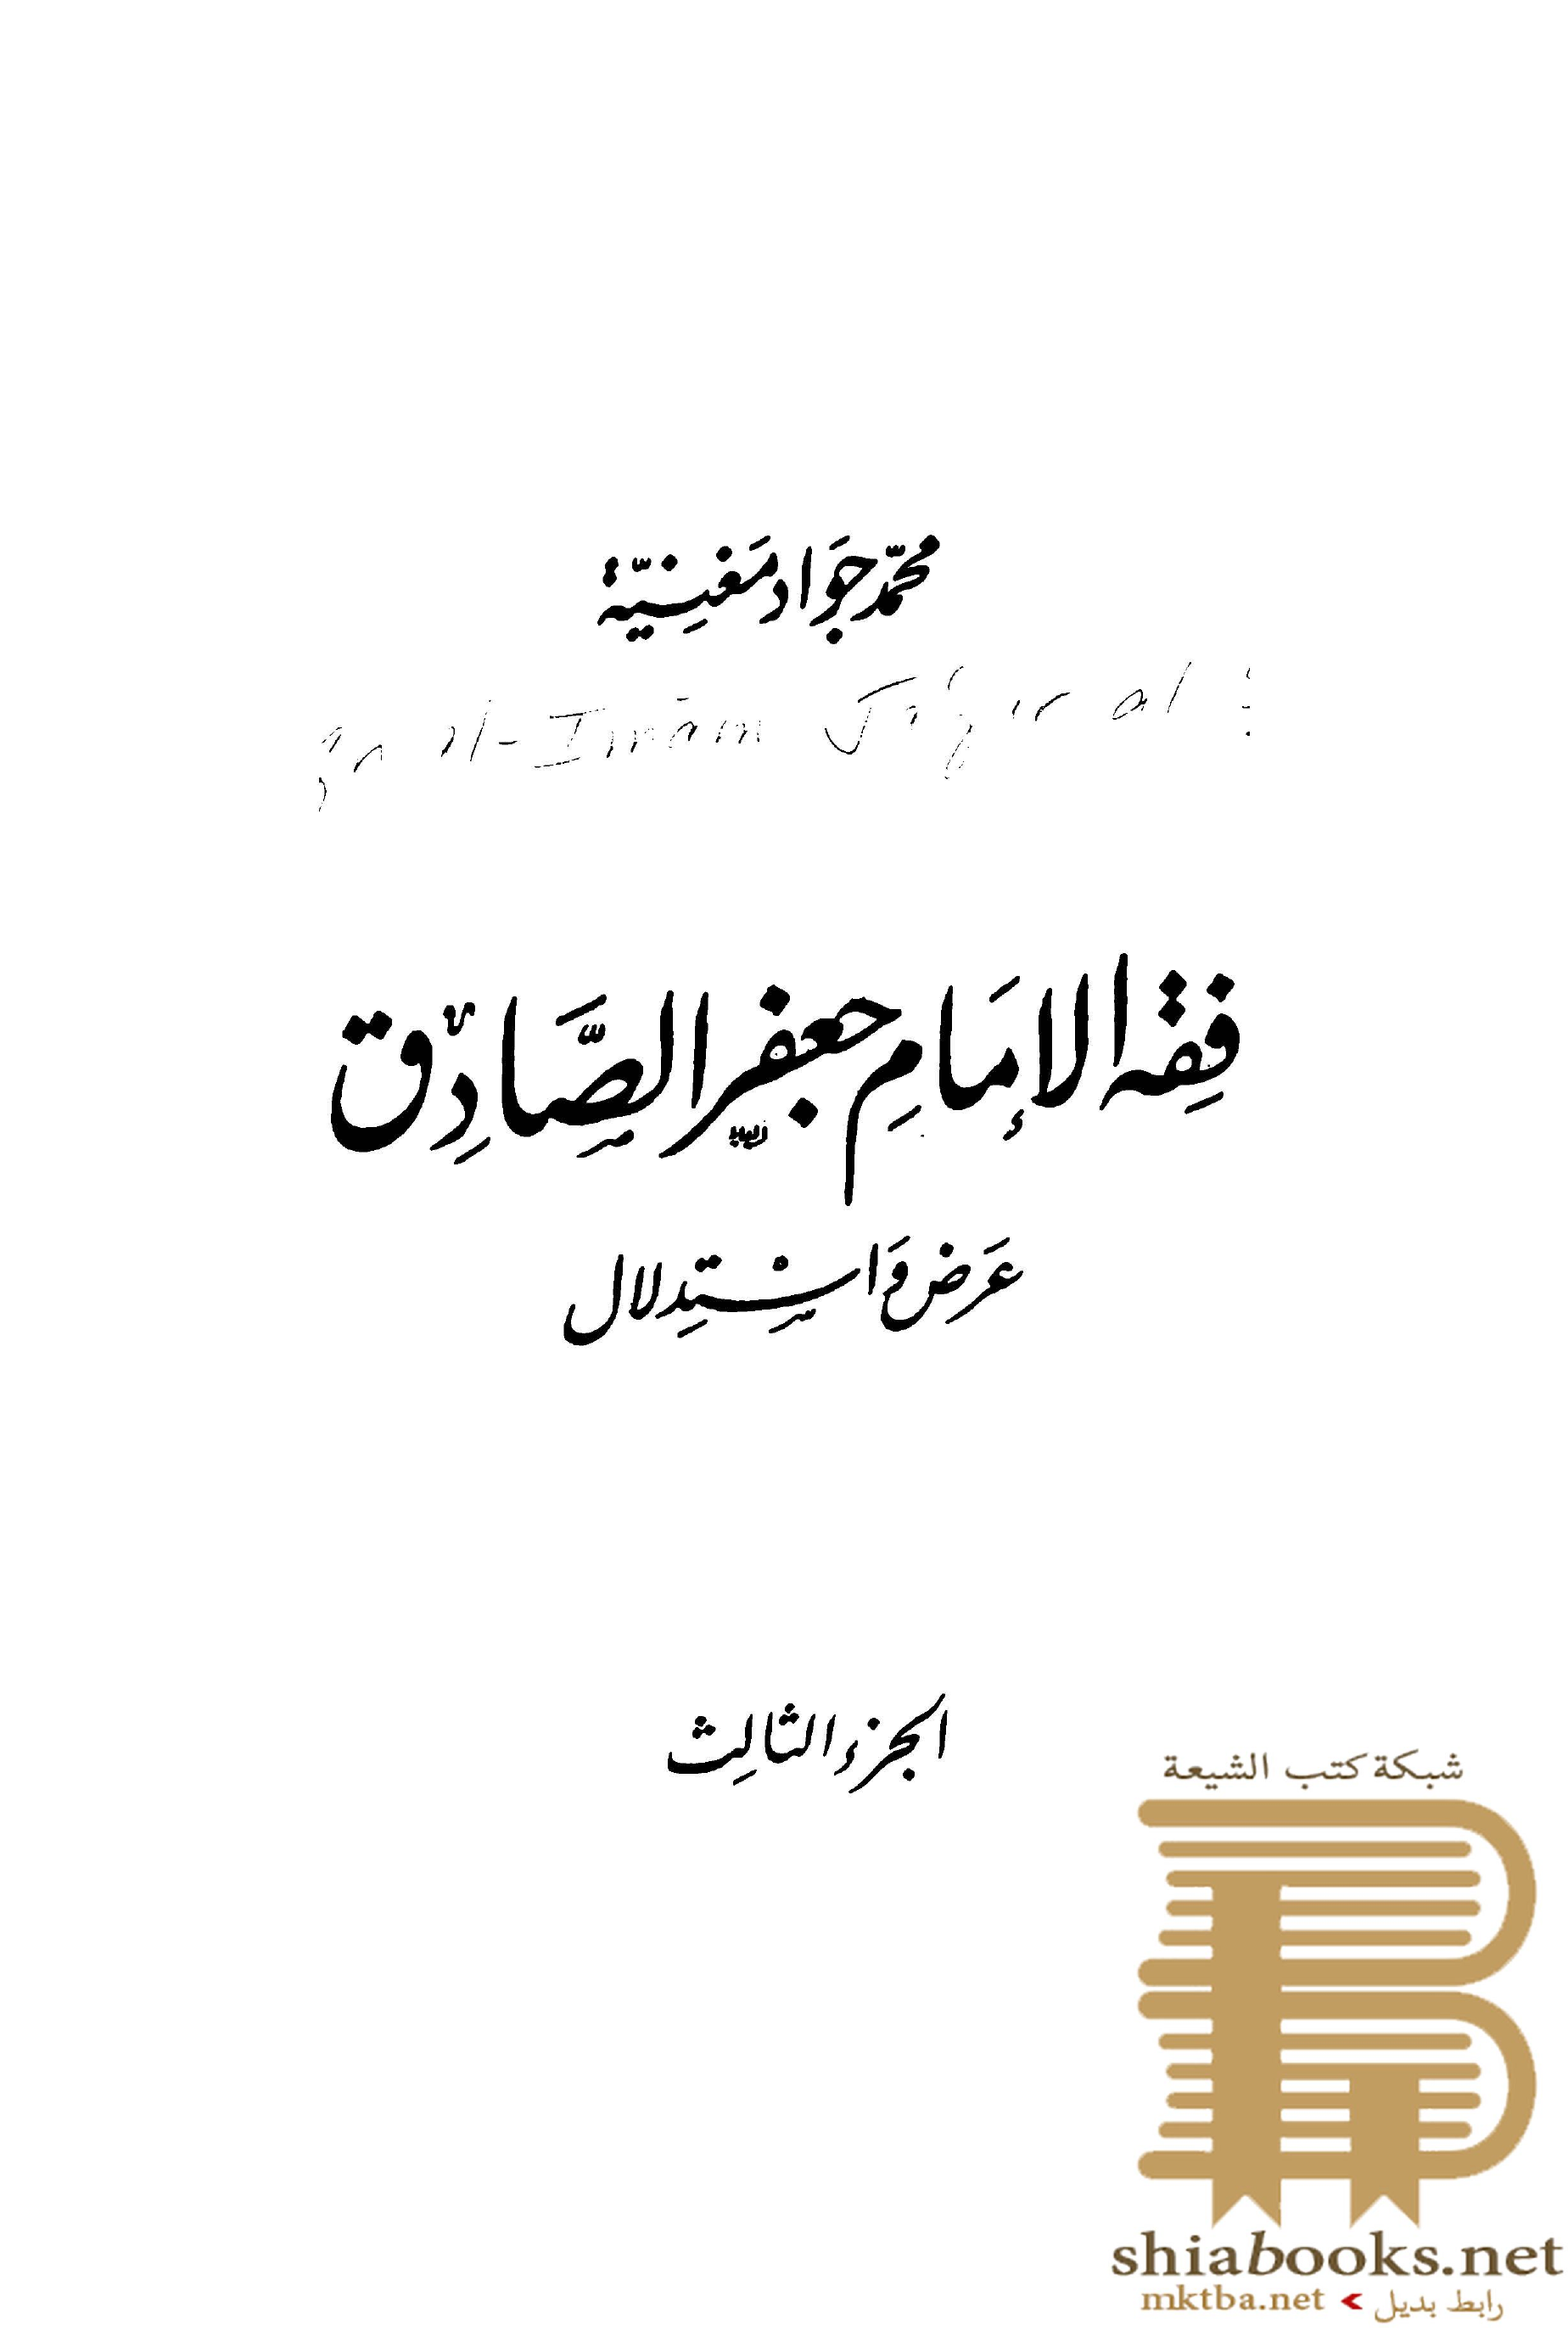 محمّد جَوَاد مَغنِيّة
al-Imām Ja'far al
فِقه الإمَامِ جعفر الصَّادِق
عَرض وَاسْتِدلال
الجزء الثالِث
شبكة كتب الشيعة
shiabooks.net
mktba.net < رابط بديل